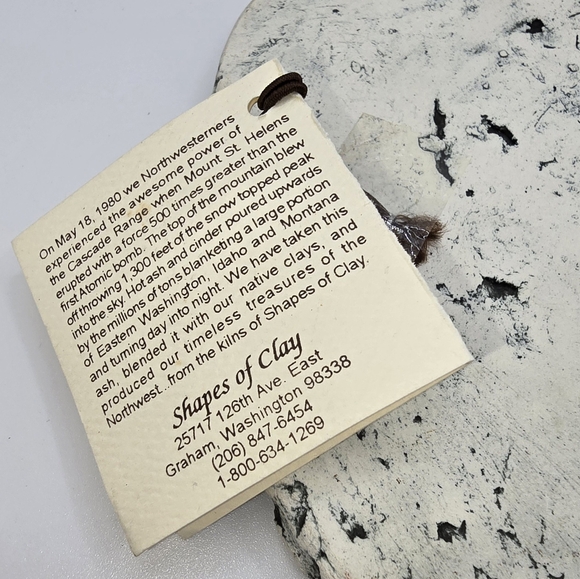 On May 18, 1980 we Northwesterners
experienced the awesome power of
the Cascade Range when Mount St. Helens
erupted with a force 500 times greater than the
first Atomic bomb. The top of the mountain blew
off throwing 1,300 feet of the snow topped peak
into the sky. Hot ash and cinder poured upwards
by the millions of tons blanketing a large portion
of Eastern Washington, Idaho and Montana
and turning day into night. We have taken this
ash, blended it with our native clays, and
produced our timeless treasures of the
Northwest...from the kilns of Shapes of Clay.
Shapes of Clay
25717 126th Ave. East
Graham, Washington 98338
(206) 847-6454
1-800-634-1269